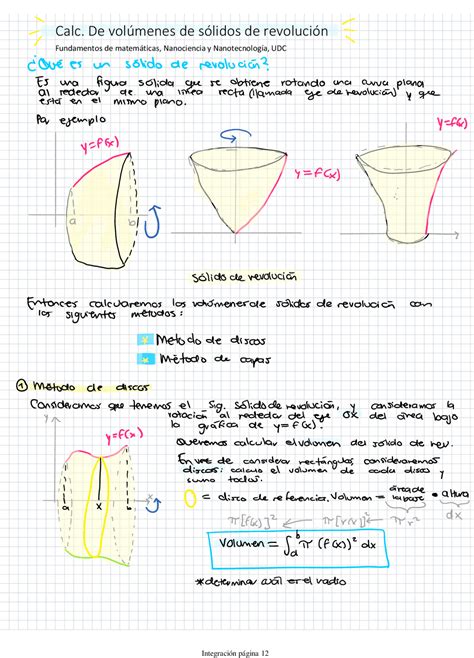 Calc. De volúmenes de sólidos de revolución
Fundamentos de matemáticas, Nanociencia y Nanotecnología, UDC
¿Qué es un sólido de revolución?
Es una figura sólida que se obtiene rotando una curva plana
al rededor de una línea recta (llamada eje de revolución) y que
está en el mismo plano.
Por ejemplo
y=f(x)
y=f(x)
y=f(x)
a
b
sólido de revolución
Entonces calcularemos los volúmenes de sólidos de revolución con
los siguientes métodos:
Método de discos
Método de capas
① Método de discos
Consideramos que tenemos el sig. sólido de revolución, y consideramos la
rotación al rededor del eje ox del área bajo
la gráfica de y=f(x).
y
y=f(x)
a
x
b
x
Queremos calcular el volumen del sólido de rev.
En vez de considerar rectángulos, consideraremos
discos: calculo el volumen de cada disco y
sumo todos.
= disco de referencia. Volumen = área de la base • altura
π[f(x)]² ← π[r(x)]² ← πr² dx
Volumen = ∫ₐᵇ π (f(x))² dx
*determinar cuál es el radio
Integración página 12